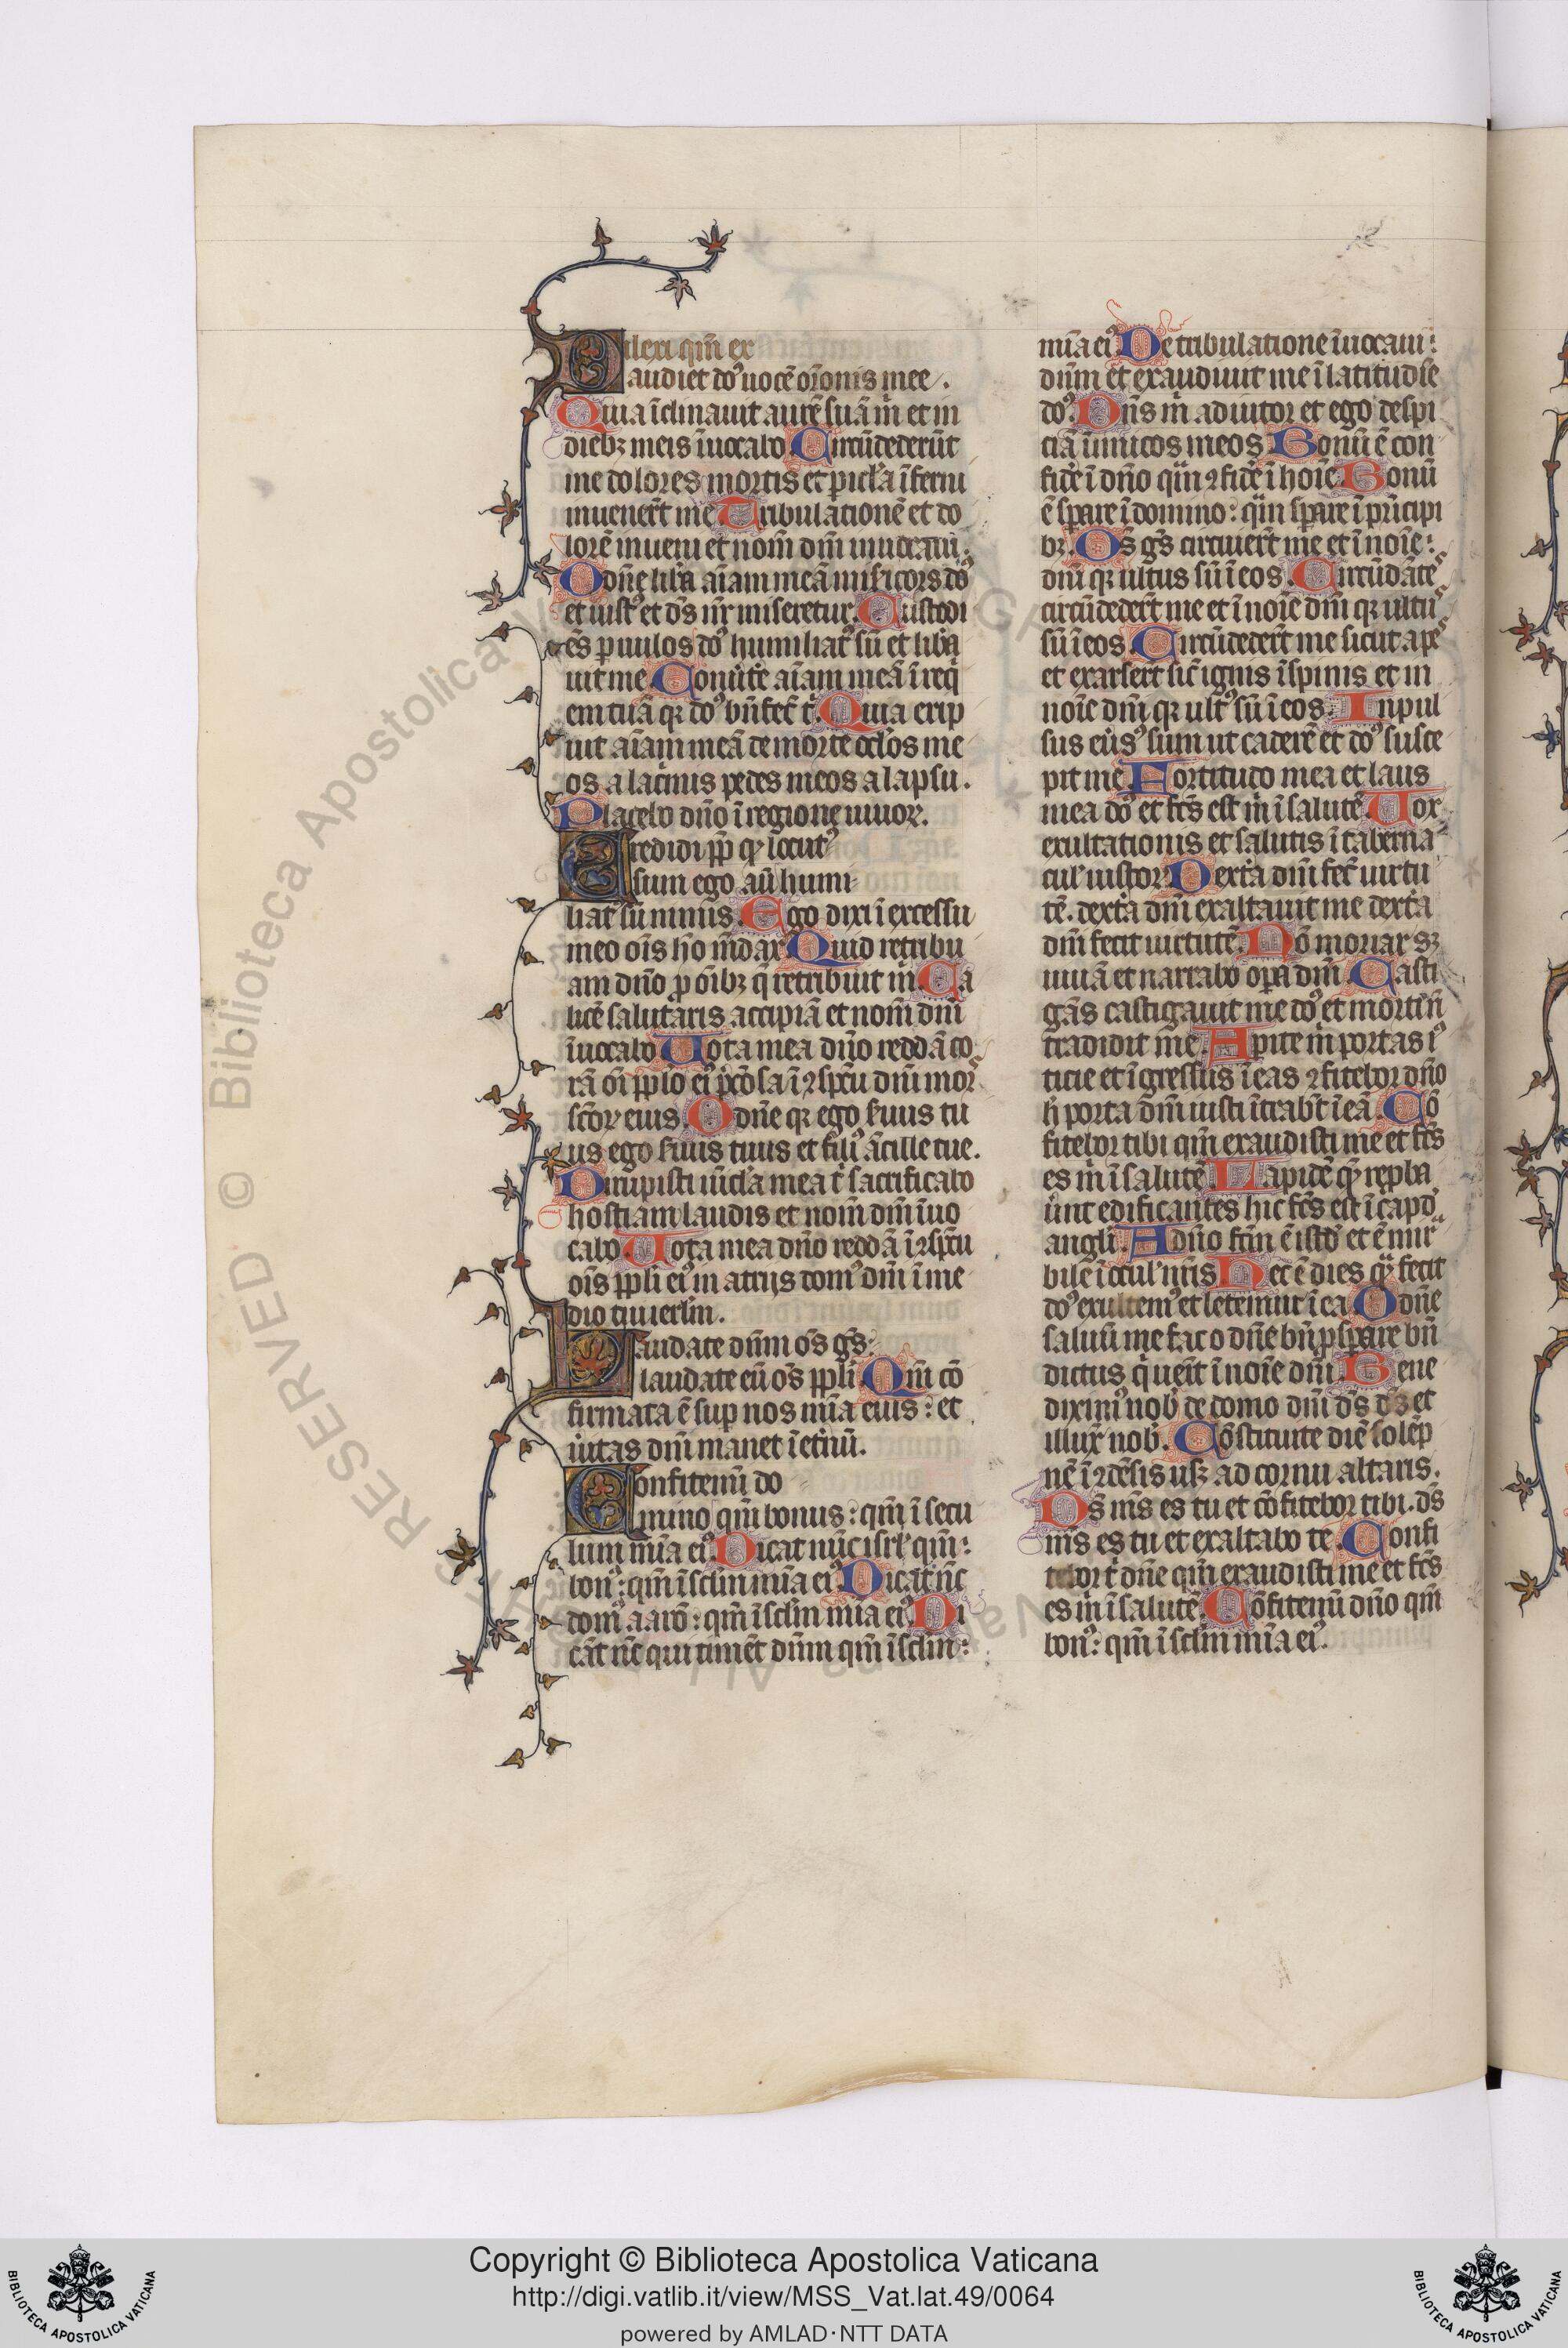 Dilexi qm̄ ex
audiet do᷒ uocē or̄onis mee.
Quia īclinauit aurē suā m̄ et in
diebꝫ meis īuocabo Circūdederūt
me dolores mortis et pericl̄a īferni
inuener̄t me Tribulationē et do
lorē inueni et nom̄ dn̄i inuocaui.
O dn̄e lib̄a aīam meā misericors do᷒
et iust᷒ et ds̄ nr̄ miseretur. Custodi
ēs paruulos do᷒ humiliat᷒ sū et lib̄a
uit me Conu̇te aīam meā ī req̇
em tuā qꝛ do᷒ bn̄fec̄ t̄. Quia erip
uit aīam meā de morte ocl̄os me
os a lac̄mis pedes meos a lapsu.
Placebo dn̄o ī regione uiuoꝝ.
Credidi pp̄ qꝫ locut᷒
sum ego aū humi
liat᷒ sū nimis. Ego dixi ī excessu
meo oīs hō mēdax Quid retribu
am dn̄o ꝓ oībꝫ q̄ retribuit m̄. Ca
licē salutaris accipiā et nom̄ dn̄i
īuocabo Uota mea dn̄o reddā co
rā oī pplo ei᷒ p̄ciōsa ī ꝯspc̄u dn̄i mor᷒
sc̄oꝝ eius. O dn̄e qꝛ ego seruus tu
us ego seruus tuus et fili᷒ ācille tue.
Dirupisti uīcl̄a mea t̄ sacrificabo
hostiam laudis et nom̄ dn̄i īuo
cabo Uota mea dn̄o reddā ī ꝯspc̄tu
oīs ppli ei᷒ in atrijs dom᷒ dn̄i ī me
dio tui ierl̄m.
Laudate dn̄m os̄ gs̄:
laudate eū os̄ ppl̄i Qm̄ cō
firmata ē sup̄ nos mīa eius: et
u̇itas dn̄i manet ī et̄nū.
Confitemi᷒ do
mino qm̄ bonus: qm̄ ī secu
lum mīa ei᷒. Dicat nūc isrl̄ qm̄:
bon᷒: qm̄ ī scl̄m mīa ei᷒ Dicāt nc̄
dom᷒ aarō: qm̄ ī scl̄m mīa ei᷒ Di
cāt nc̄ qui timēt dn̄m qm̄ ī scl̄m:
mīa ei᷒ De tribulatione īuocaui:
dn̄m et exaudiuit me ī latitudīe
do᷒. Dn̄s m̄ adiutor et ego despi
ciā īimicos meos Bonū ē con
fid̄e ī dn̄o qu̇̄ ꝯfid̄e ī hoīe Bonū
ē sp̄are ī domino: qu̇̄ sp̄are ī prīncipi
bꝫ. Os̄ gs̄ circuier̄t me et ī noīe:
dn̄i qꝛ ultus sū ī eos. Circūdātes
circūdeder̄t me et ī noīe dn̄i qꝛ ultus
sū ī eos. Circūdeder̄t me sicut apes
et exarser̄t sic̄ ignis ī spinis et in
noīe dn̄i qꝛ ult᷒ sū ī eos. Inpul
sus eu̇s᷒ sum ut caderē et do᷒ susce
pit me Fortitudo mea et laus
mea do᷒ et fc̄s est m̄ ī salutē Uox
exultationis et salutis ī taberna
cul᷒ iustoꝝ. Dext̄a dn̄i fec̄ uirtu
tē. dext̄a dn̄i exaltauit me dext̄a
dn̄i fecit uirtutē Nō moriar sꝫ
uiuā et narrabo op̄a dn̄i. Casti
gās castigauit me do᷒ et morti n̄
tradidit me. Ap̄ite m̄ portas i᷒
ticie et īgressus ī eas ꝯfitebor dn̄o
h̄ porta dn̄i iusti ītrabt̄ ī eā. Cō
fitebor tibi qm̄ exaudisti me et fc̄s
es m̄ ī salutē Lapidē qꝫ reproba
u̇nt edificantes hic fc̄s est ī capd᷒
anguli. A dn̄o fc̄m ē istd᷒ et ē mir
bile ī ocul᷒ nr̄is Hec ē dies qꝫ fecit
do᷒ exultem᷒ et letemur ī ea O dn̄e
saluū me fac o dn̄e bn̄ psp̄are bn̄
dictus q̇ uenit ī noīe dn̄i. Bene
dixim᷒ nob᷒ de domo dn̄i ds̄ ds̄ et
illux̄ nob᷒. Cōstituite diē solēp
nē ī ꝯdēsis usqꝫ ad cornu altaris.
Ds̄ ms̄ es tu et cōfitebor tibi. ds̄
ms̄ es tu et exaltabo te. Confi
tebor t̄ dn̄e qm̄ exaudisti me et fc̄s
es m̄ ī salutē. Cōfitemi᷒ dn̄o qm̄
bon᷒: qm̄ ī scl̄m mīa ei᷒.
RESERVED © Biblioteca Apostolica
Copyright © Biblioteca Apostolica Vaticana
http://digi.vatlib.it/view/MSS_Vat.lat.49/0064
powered by AMLAD·NTT DATA
BIBLIOTECA APOSTOLICA VATICANA
BIBLIOTECA APOSTOLICA VATICANA